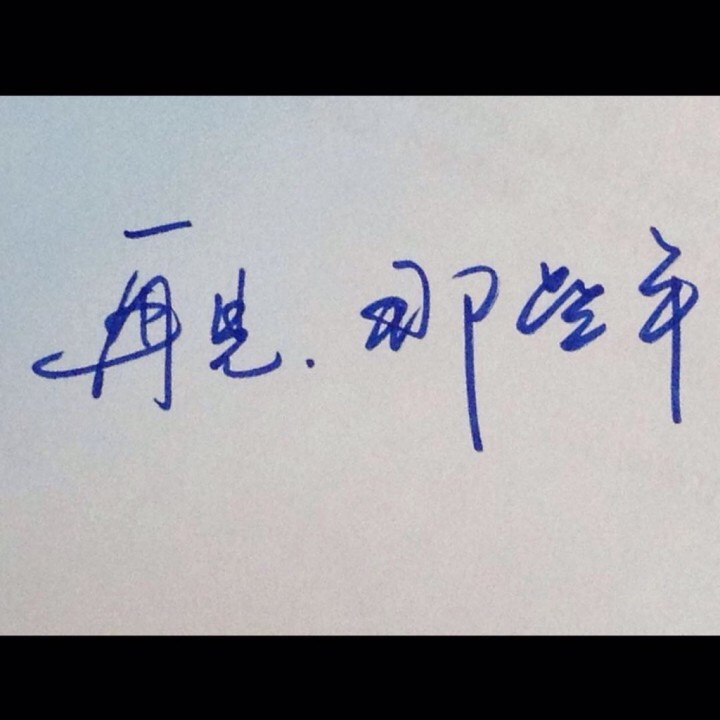 再见.那些年